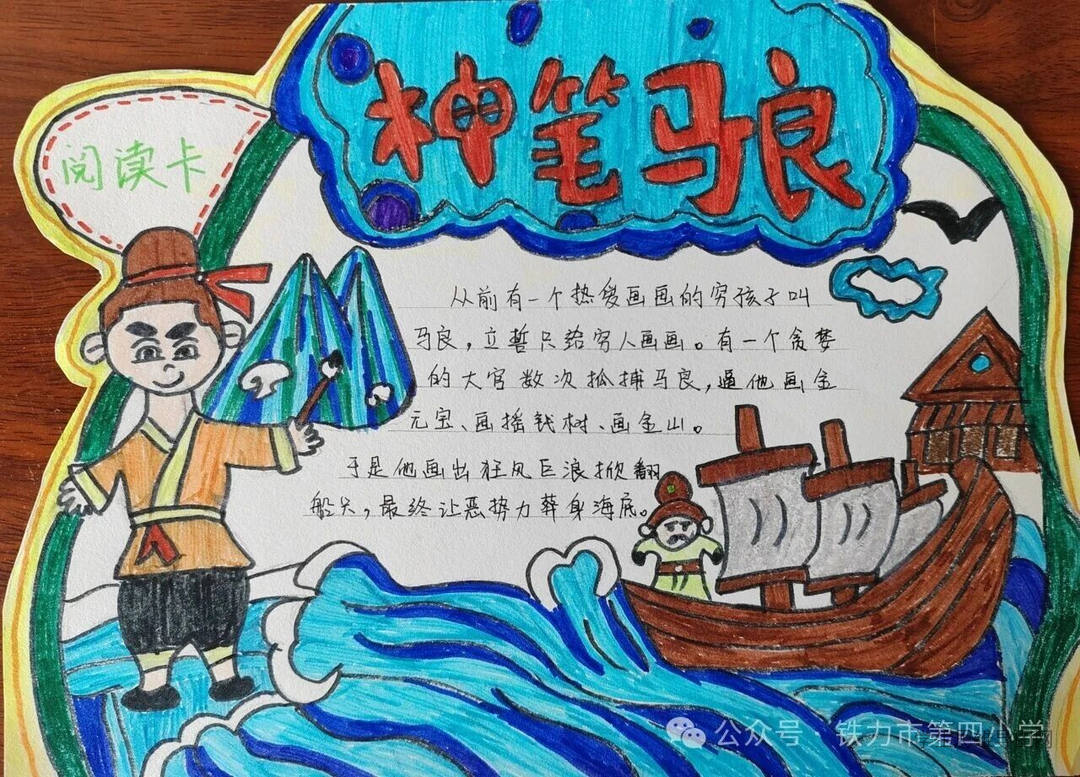 神笔马良
阅读卡
从前有一个热爱画画的穷孩子叫
马良，立誓只给穷人画画。有一个贪婪
的大官数次抓捕马良，逼他画金
元宝、画摇钱树、画金山。
于是他画出狂风巨浪掀翻
船只，最终让恶势力葬身海底。
公众号·铁力市第四小学